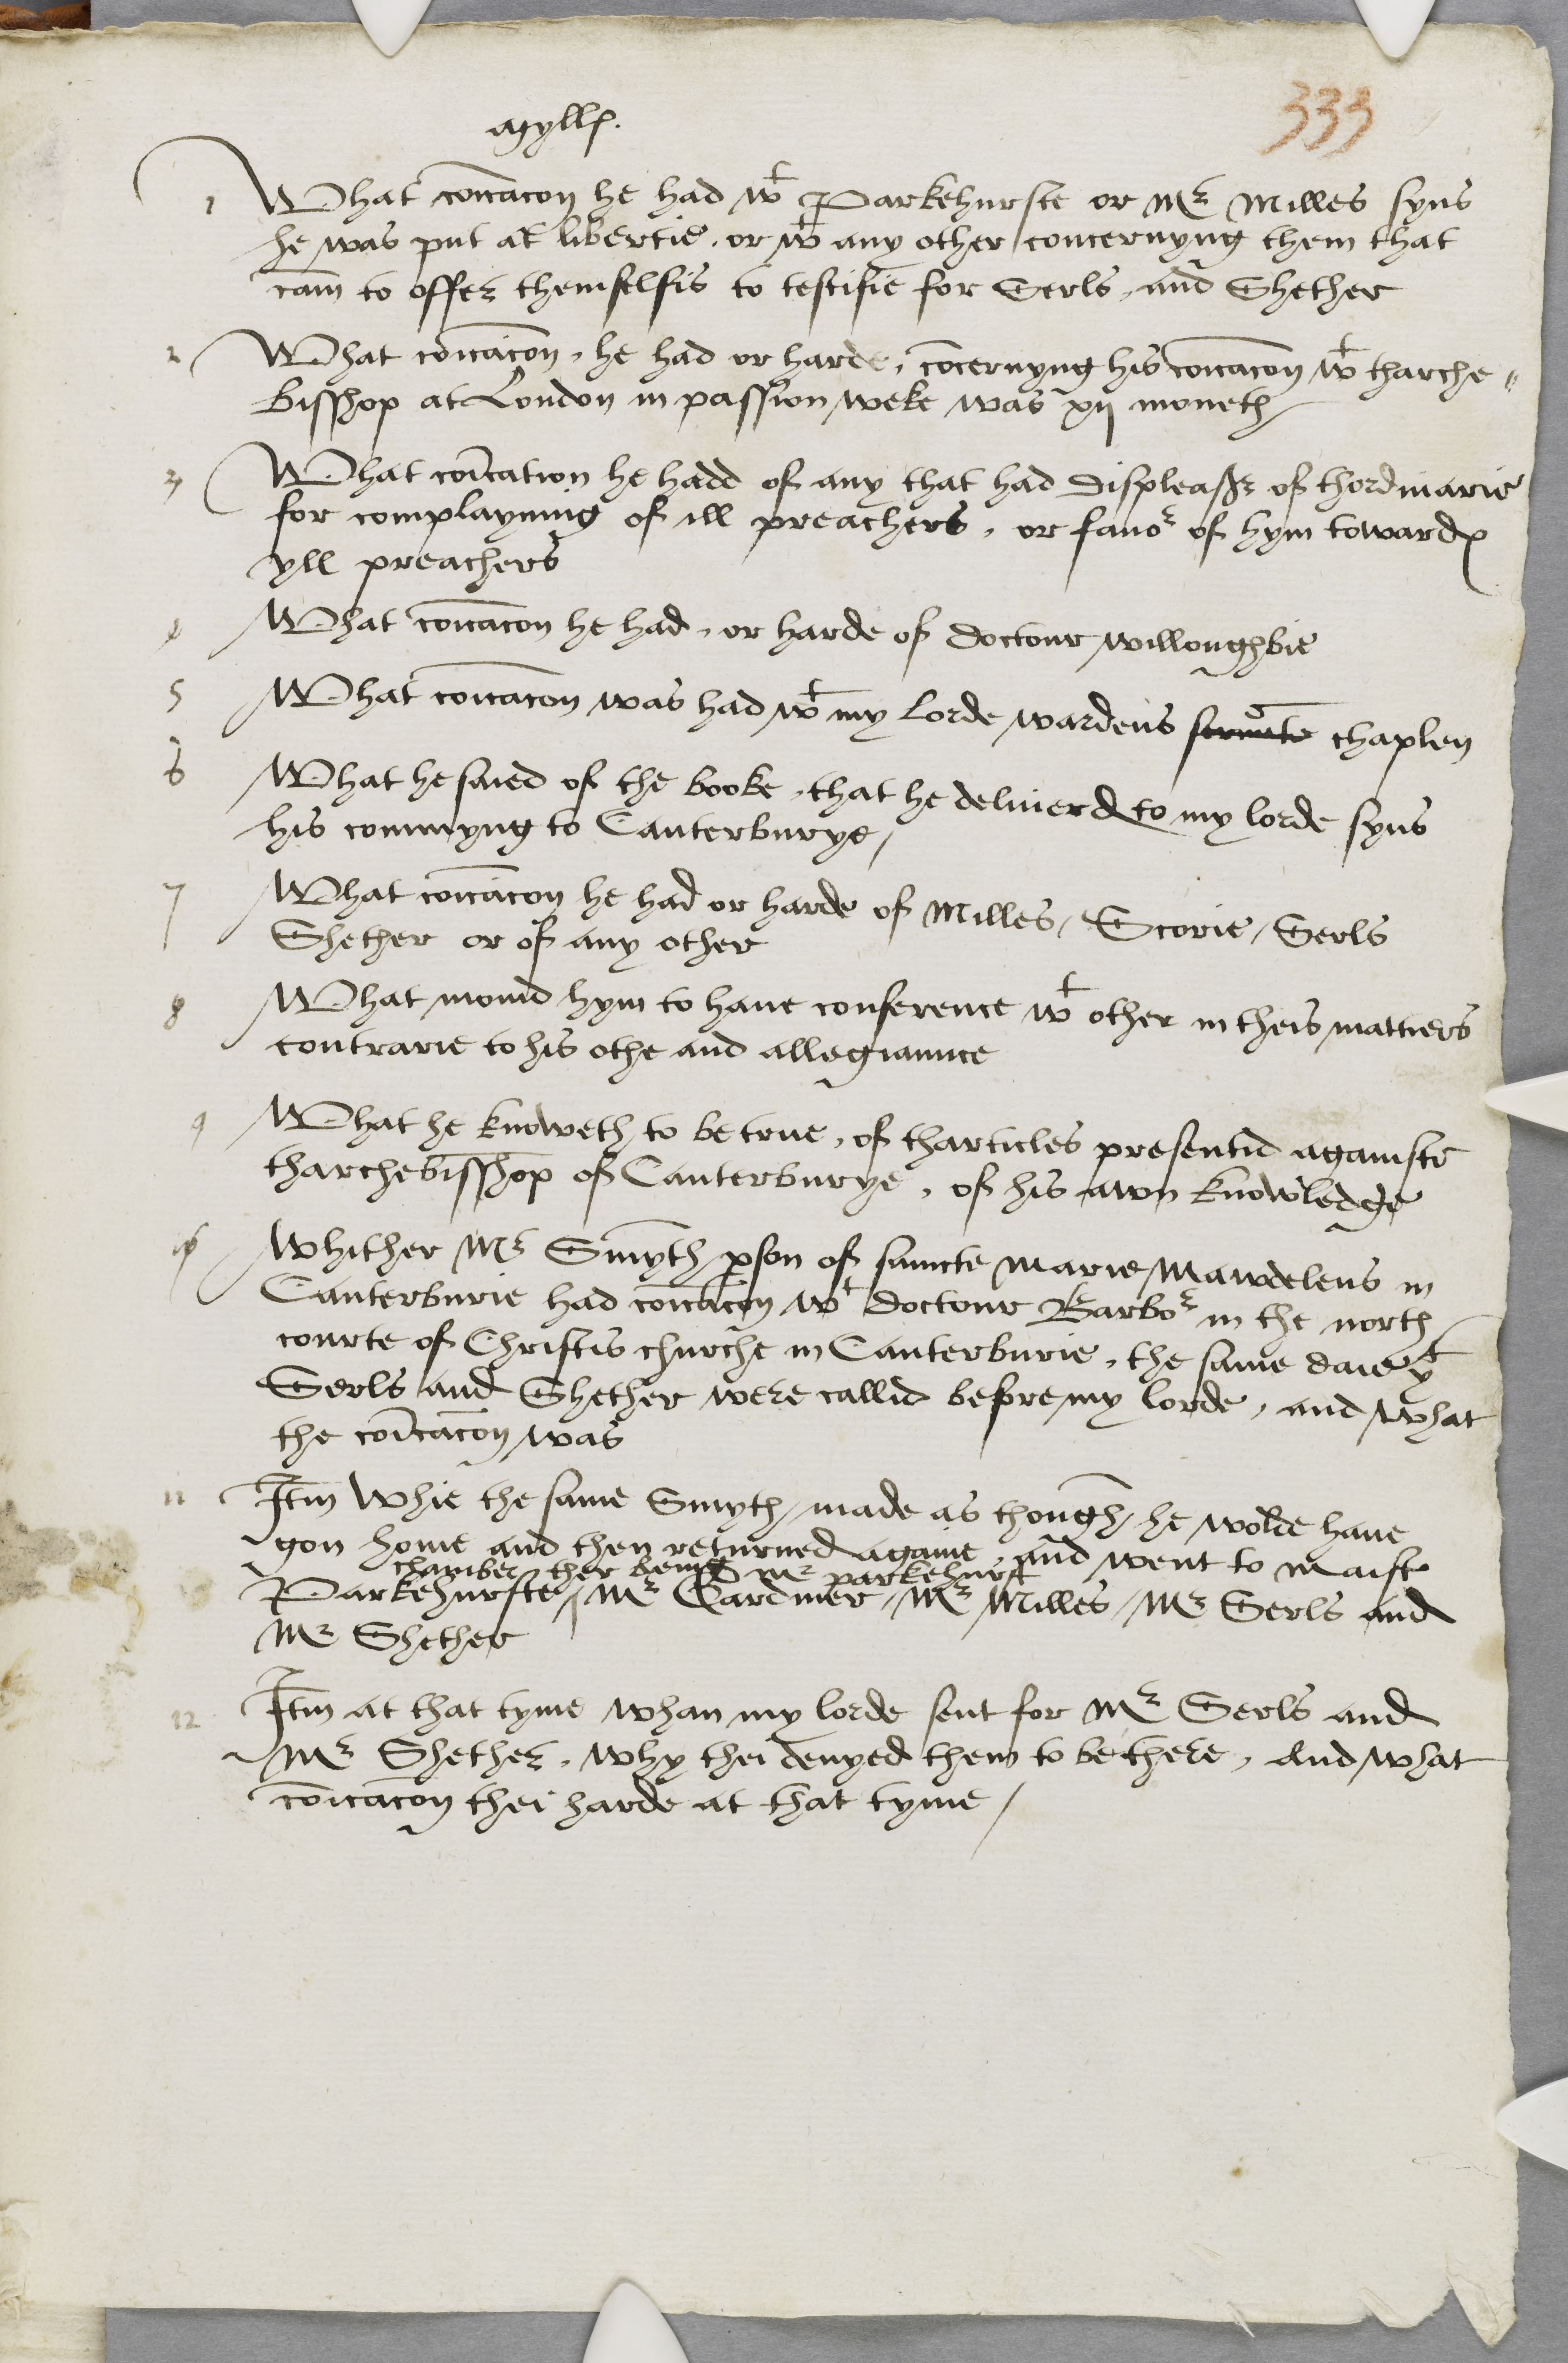 333
agyllꝭ.
1 What coicacon he had wt Parkehurste or Mr Milles syns
he was put at libertie, or wt any other concernyng them that
cam to offer themselfis to testifie for Serls, and Shether
2 What coicacon, he had or harde, concernyng his coicacon wt tharche〃
bisshop at London in passion weke was xij moneth
3 What coication he hadd of any that had displeasr of thordinarie
for complayning of ill preachers, or favor of hym towardꝭ
yll preachers
4 What coicacon he had, or harde of doctour willoughbie
5 What coicacon was had wt my lorde wardens servante chaplen
6 What he saied of the booke, that he deliverd to my lorde syns
his commyng to Canterburye,
7 What coicacon he had or harde of Milles, Scorie, Serls
Shether or of any other
8 What movid hym to have conference wt other in theis mattiers
contrarie to his othe and allegiaunce
9 What he knoweth to be true, of tharticles presentid againste
tharchebisshop of Canterburye, of his awn knowledge
10 Whither Mr Smyth pson of saincte Marie Mawdelens in
Canterburie had coicacon wt doctour Barbor in the north
courte of Christis churche in Canterburie, the same daie yt
Serls and Shether were callid before my lorde, and what
the coicacon was
11 Itm whie the same Smyth, made as though, he wolde have
gon home and then returned againe, and went to Maist
chamber ther being Mr parkehurst
Parkehurste, Mr Gardiner, Mr Milles, Mr Serls and
Mr Shether
12 Itm at that tyme whan my lorde sent for Mr Serls and
Mr Shether, why thei denyed them to be there, and what
coicacon thei harde at that tyme,